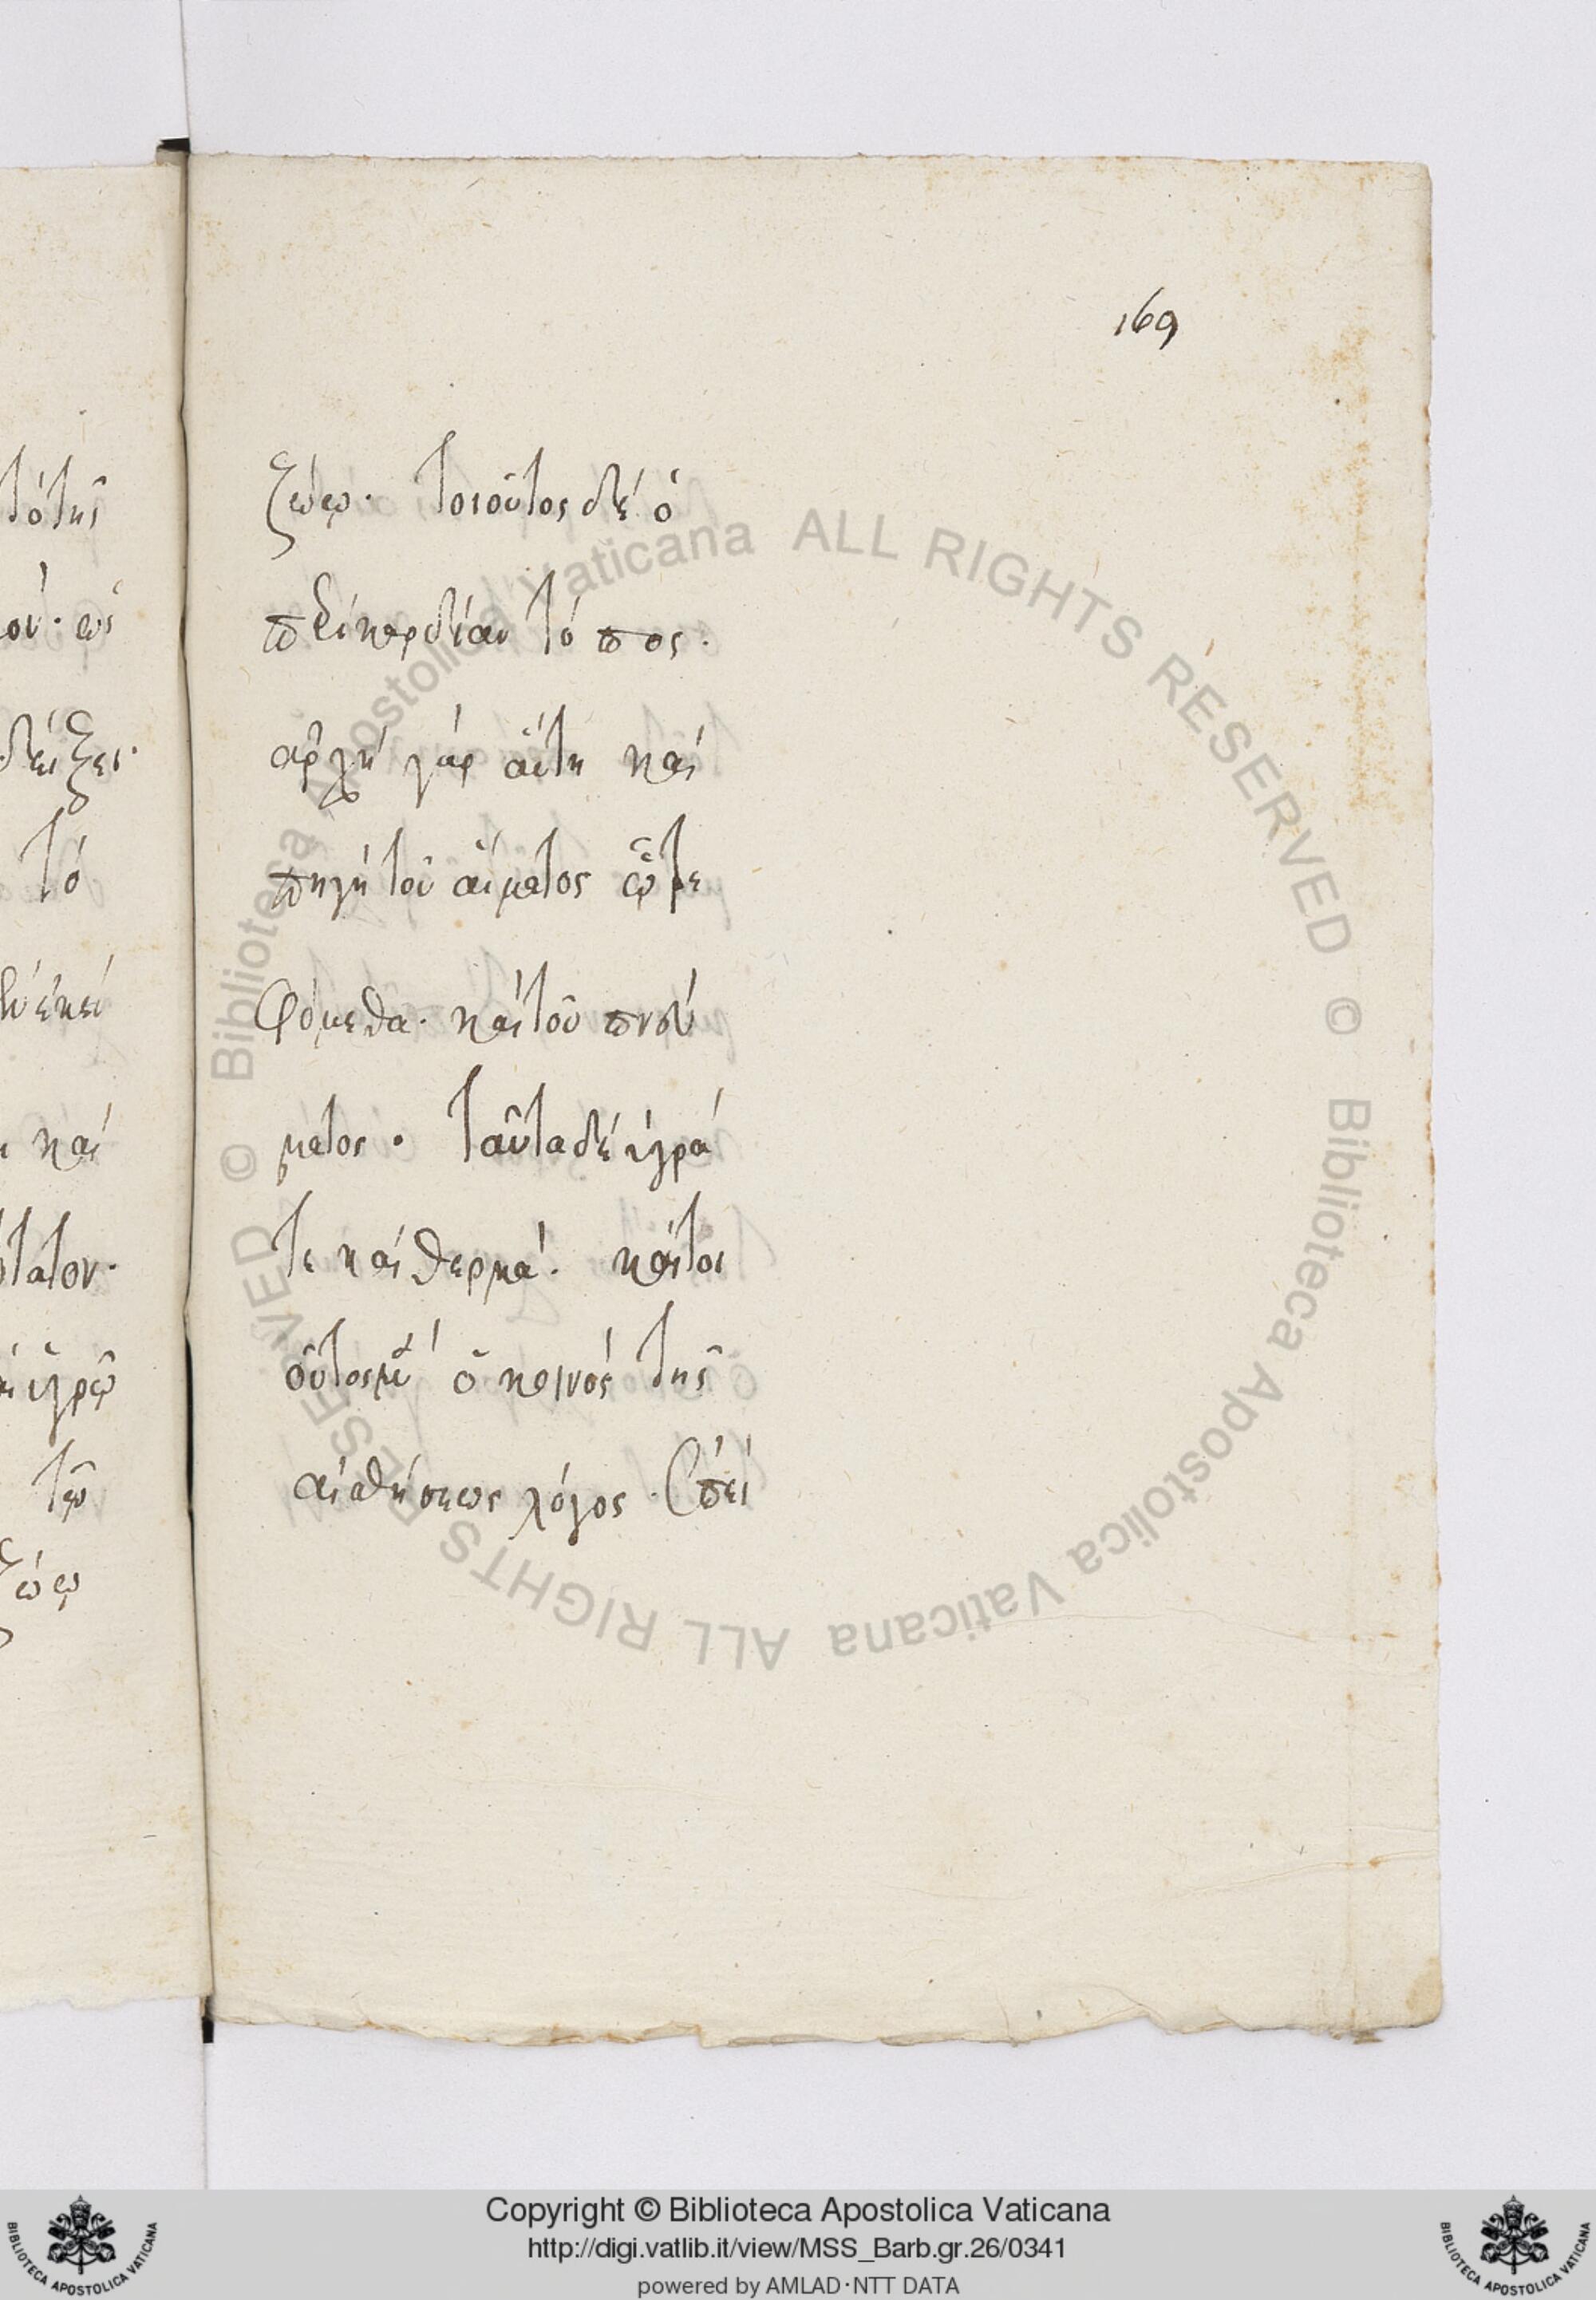 169
τότῆς
ζώω. τοιοῦτος δὲ ὁ
ον. ὡς
περὶ καρδίαν τόπος.
δείξει.
ἀρχὴ γάρ αὕτη καὶ
τὸ
πηγὴ τοῦ αἵματος ᾧ τρε
φόμεθα. καὶ τοῦ πνεύ
καὶ
ματος. ταῦτα δὲ ὑγρά
τατον.
τε καὶ θερμά. καίτοι
ὑγρῶ
οὗτος μὲν ὁ κοινός τῆς
τῶ
αἰσθήσεως λόγος. ἐπεὶ
ζώω
Biblioteca Apostolica Vaticana ALL RIGHTS RESERVED ©
Biblioteca Apostolica Vaticana ALL RIGHTS RESERVED ©
Copyright © Biblioteca Apostolica Vaticana
http://digi.vatlib.it/view/MSS_Barb.gr.26/0341
powered by AMLAD·NTT DATA
BIBLIOTECA APOSTOLICA VATICANA
BIBLIOTECA APOSTOLICA VATICANA